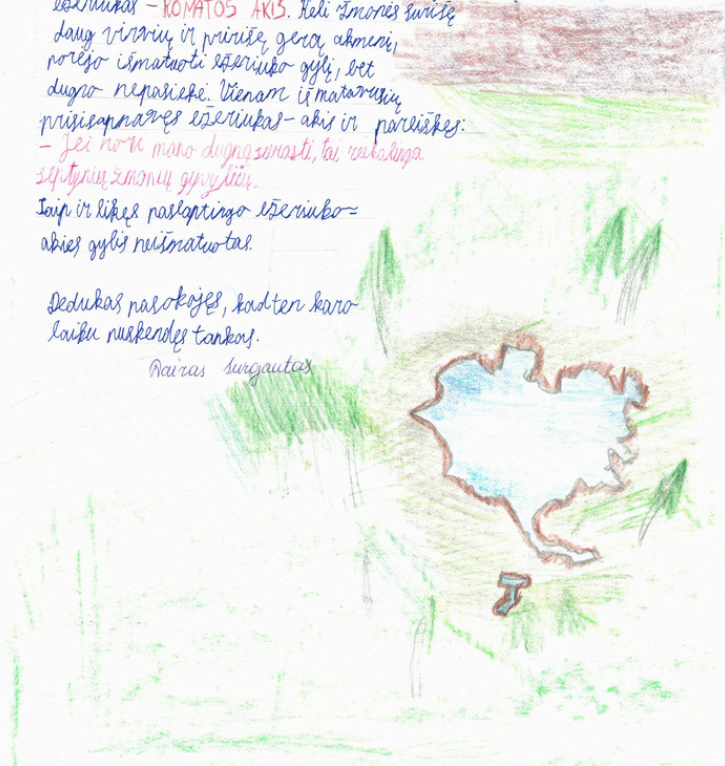 ežeriukas – KOMATOS AKIS. Keli žmonės surišę
daug virvių ir pririšę gerą akmenį,
norėjo išmatuoti ežeriuko gylį, bet
dugno nepasiekė. Vienam iš matavusių
prisisapnavęs ežeriukas – akis ir pareiškęs:
– Jei nori mano dugną surasti, tai reikalinga
septynių žmonių gyvybių.
Taip ir likęs paslaptingo ežeriuko=
akies gylis neišmatuotas.
Dedukas pasakojęs, kad ten karo
laiku nuskendęs tankas.
Dairas Surgautas